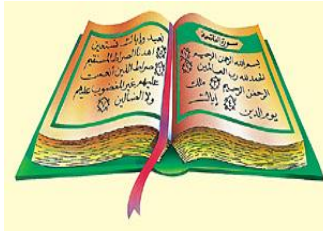 سورة الفاتحة
بسم الله الرحمن الرحيم
الحمد لله رب العالمين
الرحمن الرحيم مالك
يوم الدين إياك
نعبد وإياك نستعين
اهدنا الصراط المستقيم
صراط الذين أنعمت
عليهم غير المغضوب عليهم
ولا الضالين